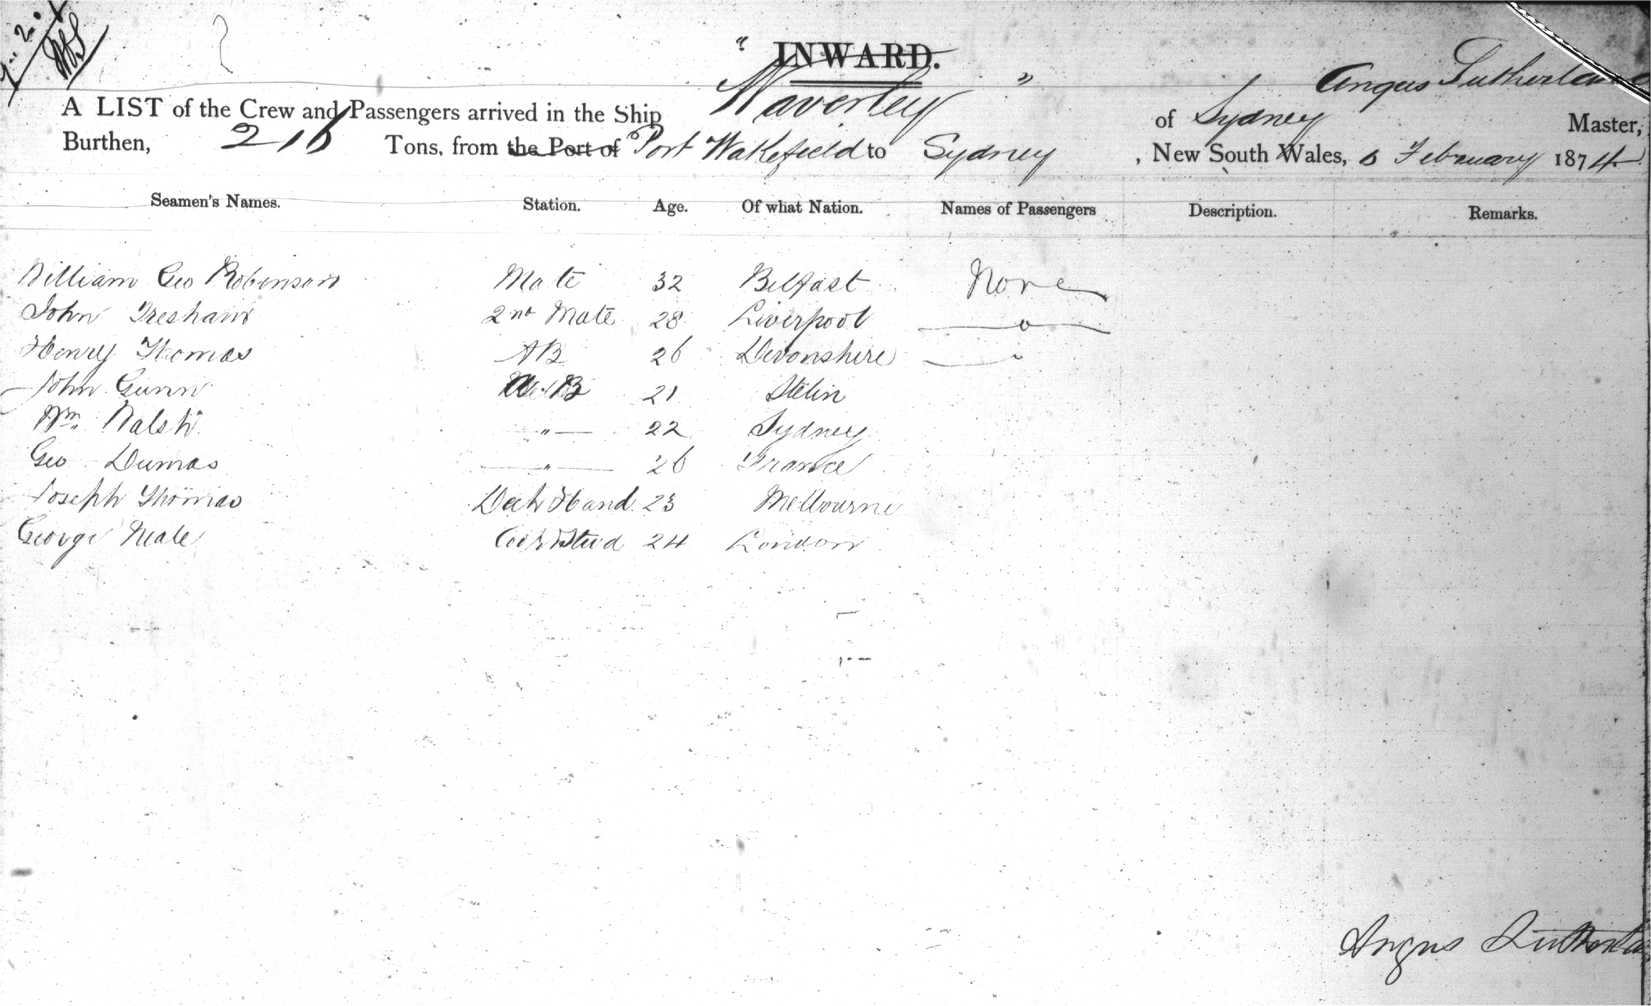 INWARD.
A LIST of the Crew and Passengers arrived in the Ship "Waverley" of Sydney Angus Sutherland Master,
Burthen, 216 Tons, from the Port of Port Wakefield to Sydney, New South Wales, 6 February 1874
Seamen's Names. Station. Age. Of what Nation. Names of Passengers Description. Remarks.
William Geo Robinson Mate 32 Belfast None
John Tresham 2nd Mate 28 Liverpool
Henry Thomas AB 26 Devonshire
John Gunn AB 21 Stetin
Wm. Walsh " 22 Sydney
Geo Dumas " 26 France
Joseph Thomas Deck Hand 23 Melbourne
George Neale Cook & Stwd 24 London
Angus Sutherland